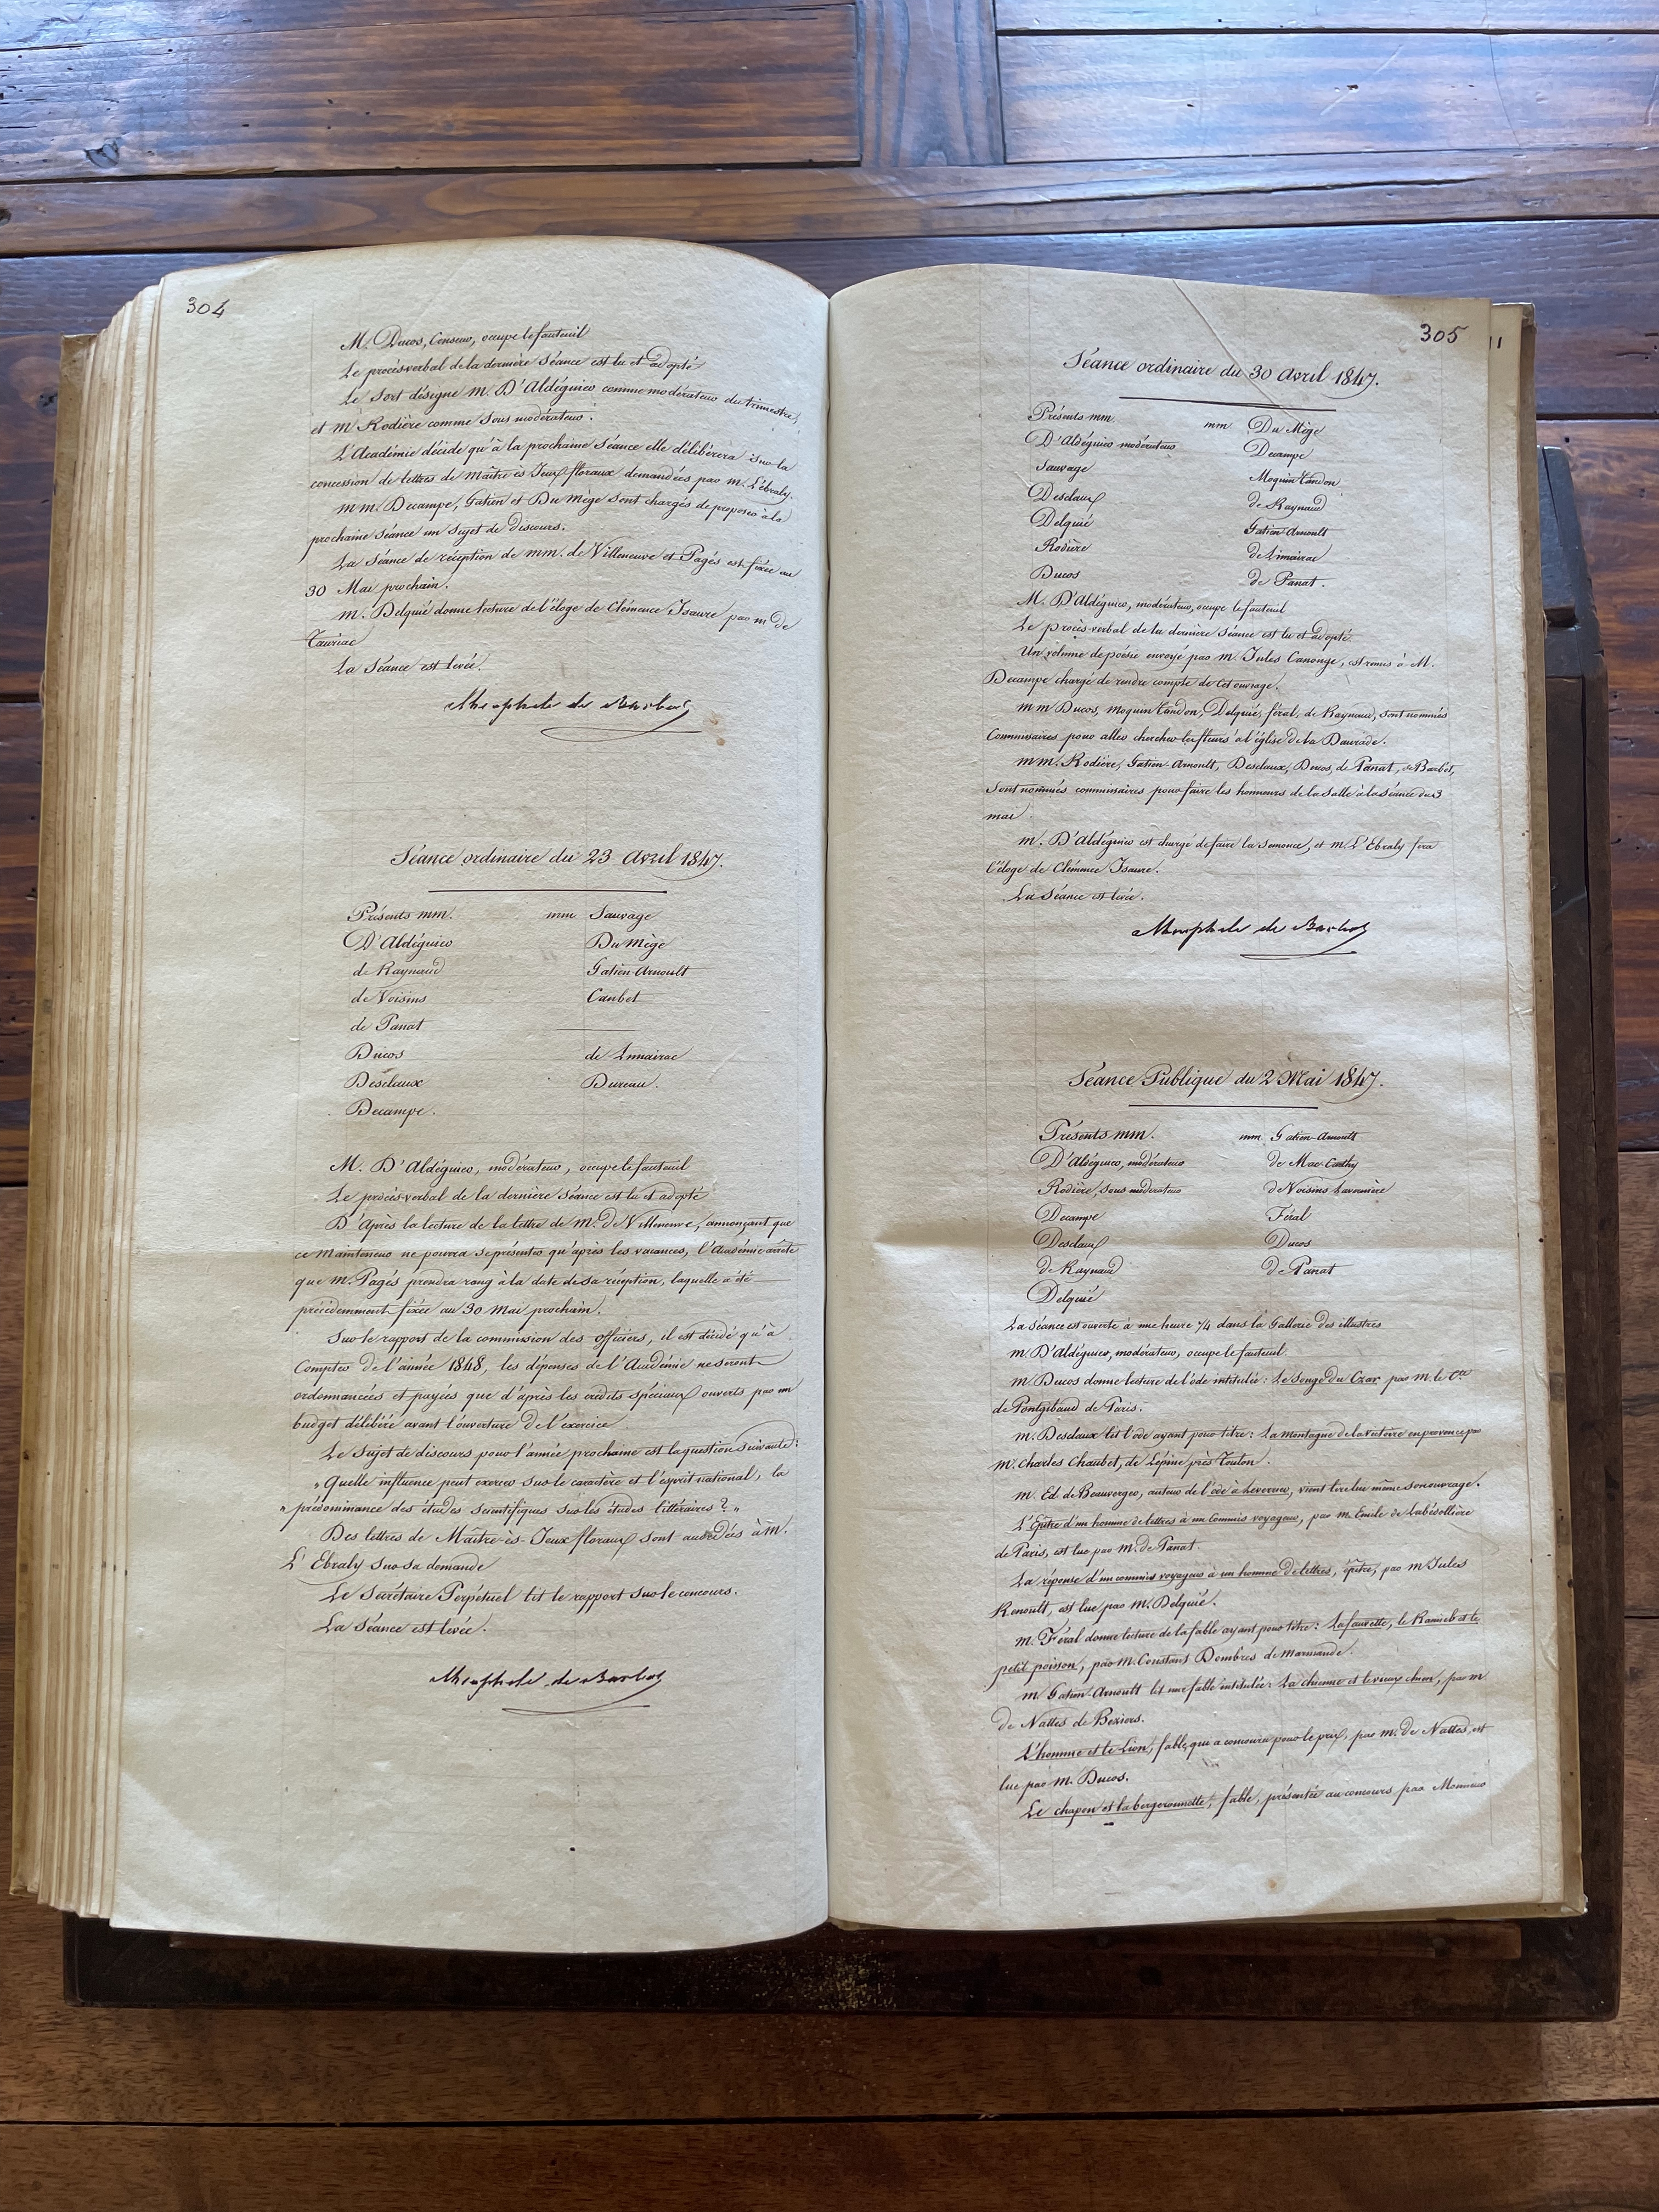 304
M. Ducos, Censeur, occupe le fauteuil
Le procès-verbal de la dernière Séance est lu et adopté
Le Sort désigne M. D'Aldéguier comme modérateur du trimestre,
et M Rodière comme Sous modérateur.
L'Académie décide qu'à la prochaine Séance elle délibérera sur la
concession de lettres de Maître ès Jeux floraux demandées par M. L'ébraly.
mm. Decampe, Gatien et Du Mège sont chargés de proposer à la
prochaine Séance un Sujet de discours.
La Séance de réception de mm. de Villeneuve et Pagès est fixée au
30 Mai prochain.
M. Delquié donne lecture de l'éloge de Clémence Isaure par m de
Tauriac
La Séance est levée.
de Barbot
Séance ordinaire du 23 Avril 1847.
Présents mm. mm Sauvage
D'Aldéguier Du Mège
de Raynaud Gatien-Arnoult
de Voisins Caubet
de Panat
Ducos de Limairac
Desclaux Dureau.
Decampe.
M. D'Aldéguier, modérateur, occupe le fauteuil
Le procès-verbal de la dernière Séance est lu et adopté
D'Après la lecture de la lettre de M. de Villeneuve, annonçant que
ce Mainteneur ne pourra se présenter qu'après les vacances, l'Académie arrête
que M. Pagès prendra rang à la date de sa réception, laquelle a été
précédemment fixée au 30 Mai prochain.
Sur le rapport de la commission des officiers, il est décidé qu'à
Compter de l'année 1848, les dépenses de l'Académie ne seront
ordonnancées et payées que d'après les crédits spéciaux ouverts par un
budget délibéré avant l'ouverture de l'exercice
Le Sujet de discours pour l'année prochaine est la question Suivante:
"Quelle influence peut exercer sur le caractère et l'esprit national, la
" prédominance des études scientifiques sur les études littéraires? "
Des lettres de Maître-ès-Jeux floraux sont accordées à M.
L'Ebraly sur sa demande
Le Secrétaire Perpétuel lit le rapport sur le concours.
La Séance est levée.
de Barbot
305
11
Séance ordinaire du 30 Avril 1847.
Présents mm. mm Du Mège
D'Aldéguier modérateur Decampe
Sauvage Moquin Tandon
Desclaux de Raynaud
Delquié Gatien-Arnoult
Rodière de Limairac
Ducos de Panat.
M. D'Aldéguier, modérateur, occupe le fauteuil
Le procès-verbal de la dernière séance est lu et adopté
Un volume de poésie envoyé par M. Jules Canonge, est remis à M.
Decampe chargé de rendre compte de cet ouvrage.
mm Ducos, Moquin Tandon, Delquié, féral, de Raynaud, sont nommés
Commissaires pour aller chercher les fleurs à l'église de la Daurade.
mm. Rodière, Gatien-Arnoult, Desclaux, Ducos, de Panat, de Barbot,
Sont nommés commissaires pour faire les honneurs de la salle à la séance du 3
mai.
m. D'Aldéguier est chargé de faire la Semonce, et m. L'Ebraly fera
l'éloge de Clémence Isaure.
La Séance est levée.
de Barbot
Séance Publique du 2 Mai 1847.
Présents mm. mm. Gatien-Arnoult
D'Aldéguier, modérateur de Mac-Carthy
Rodière, sous modérateur de Voisins Lavernière
Decampe Féral
Desclaux Ducos
de Raynaud de Panat
Delquié
La Séance est ouverte à une heure 1/4 dans la Gallerie des illustres
M. D'Aldéguier, modérateur, occupe le fauteuil
M Ducos donne lecture de l'ode intitulée: Le Songe du Czar par M. le Cte
de Pontgibaud de Paris.
M. Desclaux lit l'ode ayant pour titre: La montagne de la victoire en provence par
M. Charles Chaubet, de Lépine près Toulon.
M. Ed. de Beauverger, auteur de l'ode à leverrier, vient lire lui même son ouvrage.
L'Epitre d'un homme de lettres à un Commis voyageur, par M. Emile de Labédollière
de Paris, est lue par M. de Panat
La réponse d'un commis voyageur à un homme de lettres, épitre, par M Jules
Renoult, est lue par M. Delquié.
M. Féral donne lecture de la fable ayant pour titre: La fauvette, le Ramier et le
petit poisson, par M. Constant Dombres de Marmande.
M Gatien-Arnoult lit une fable intitulée: La chienne et le vieux chien, par M
de Nattes de Béziers.
L'homme et le Lion, fable, qui a concouru pour le prix, par M. de Nattes, est
lue par M. Ducos.
Le chapon et la bergeronnette, fable, présentée au concours par Monsieur